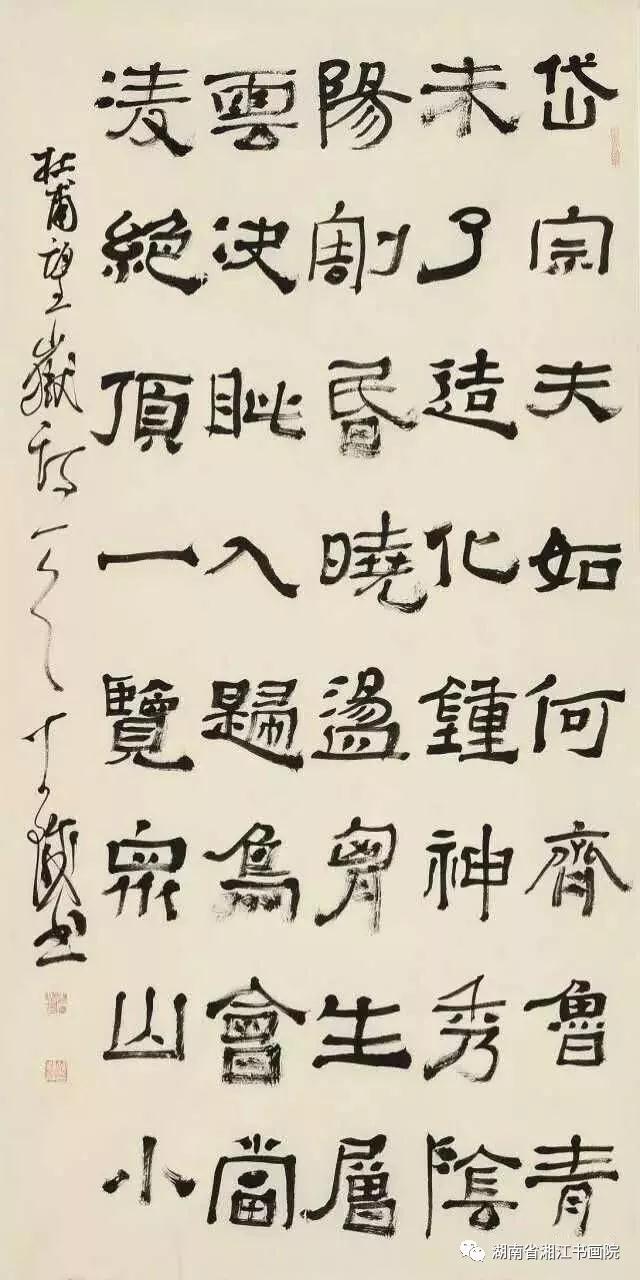 岱宗夫如何齊魯青
未了造化鍾神秀陰
陽割昏曉盪胷生層
雲決眦入歸鳥會當
淩絶頂一覽衆山小
杜甫望嶽詩一首
書
湖南省湘江书画院